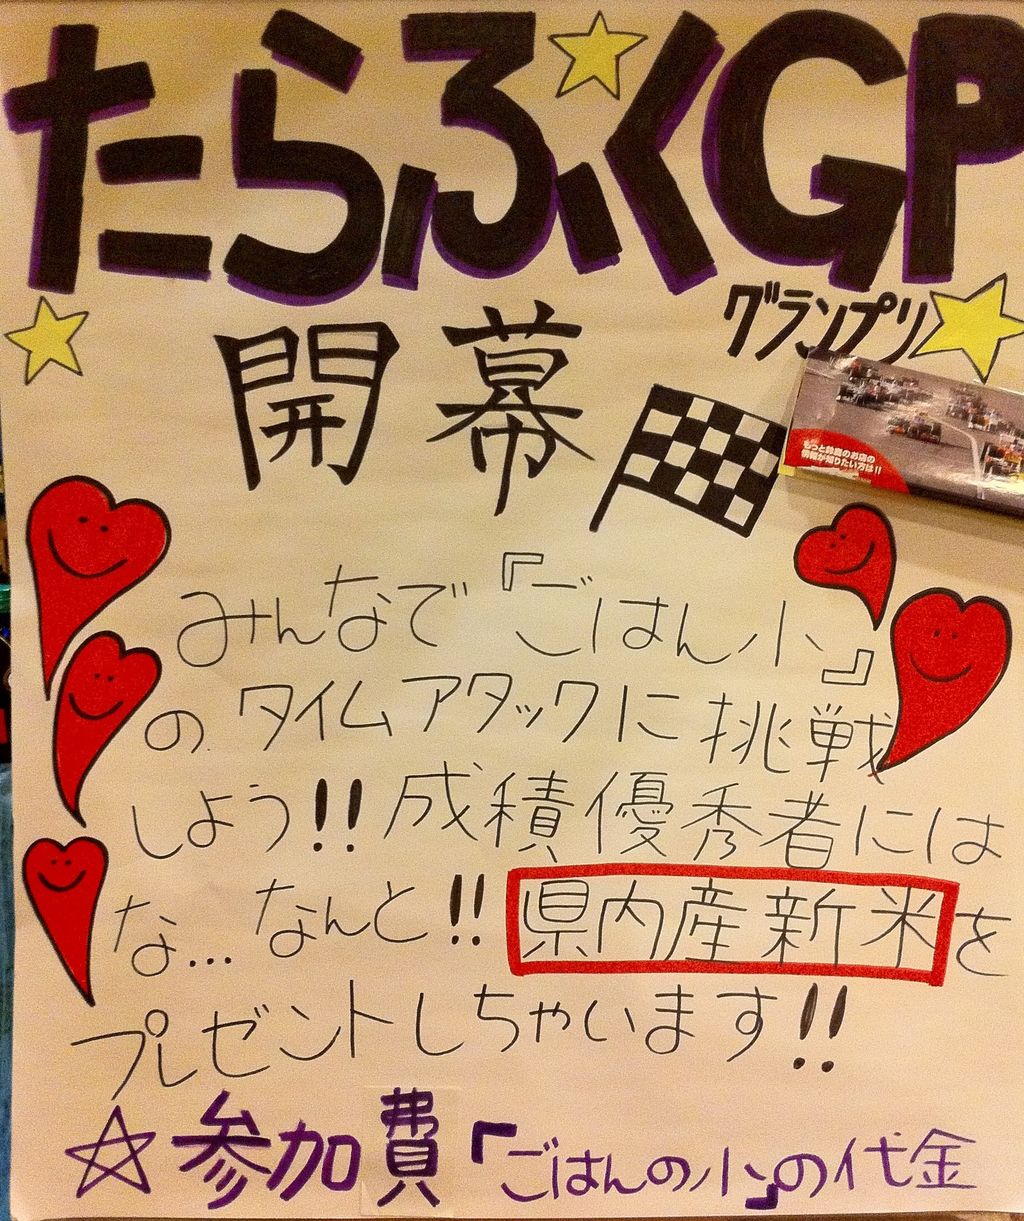 たらふくGP
グランプリ
開幕
もっと鈴鹿のお店の
情報が知りたい方は!!
みんなで『ごはん小』
のタイムアタックに挑戦
しよう!!成績優秀者には
な…なんと!!県内産新米を
プレゼントしちゃいます!!
☆参加費「ごはんの小」の代金